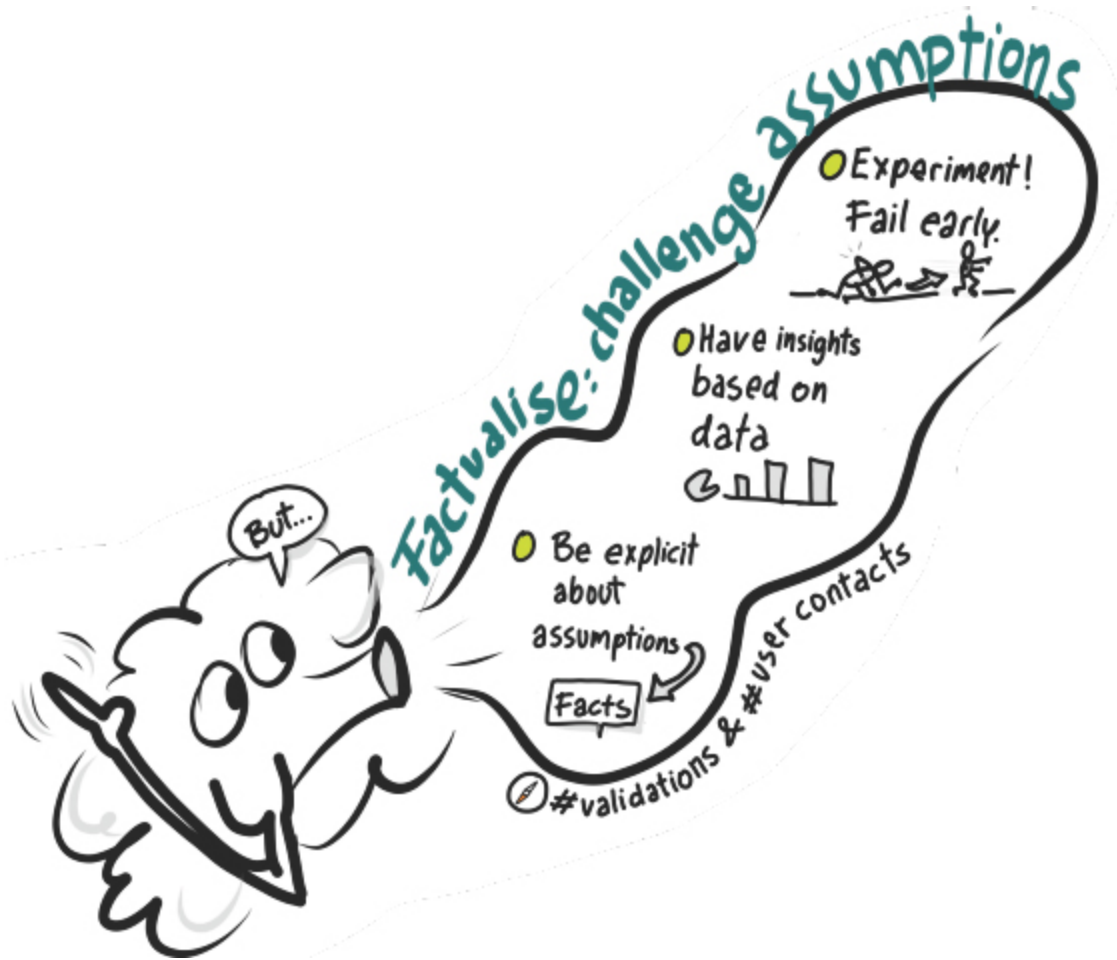 Factualise: challenge assumptions
Experiment!
Fail early.
Have insights
based on
data
Be explicit
about
assumptions
Facts
But...
#validations & #user contacts